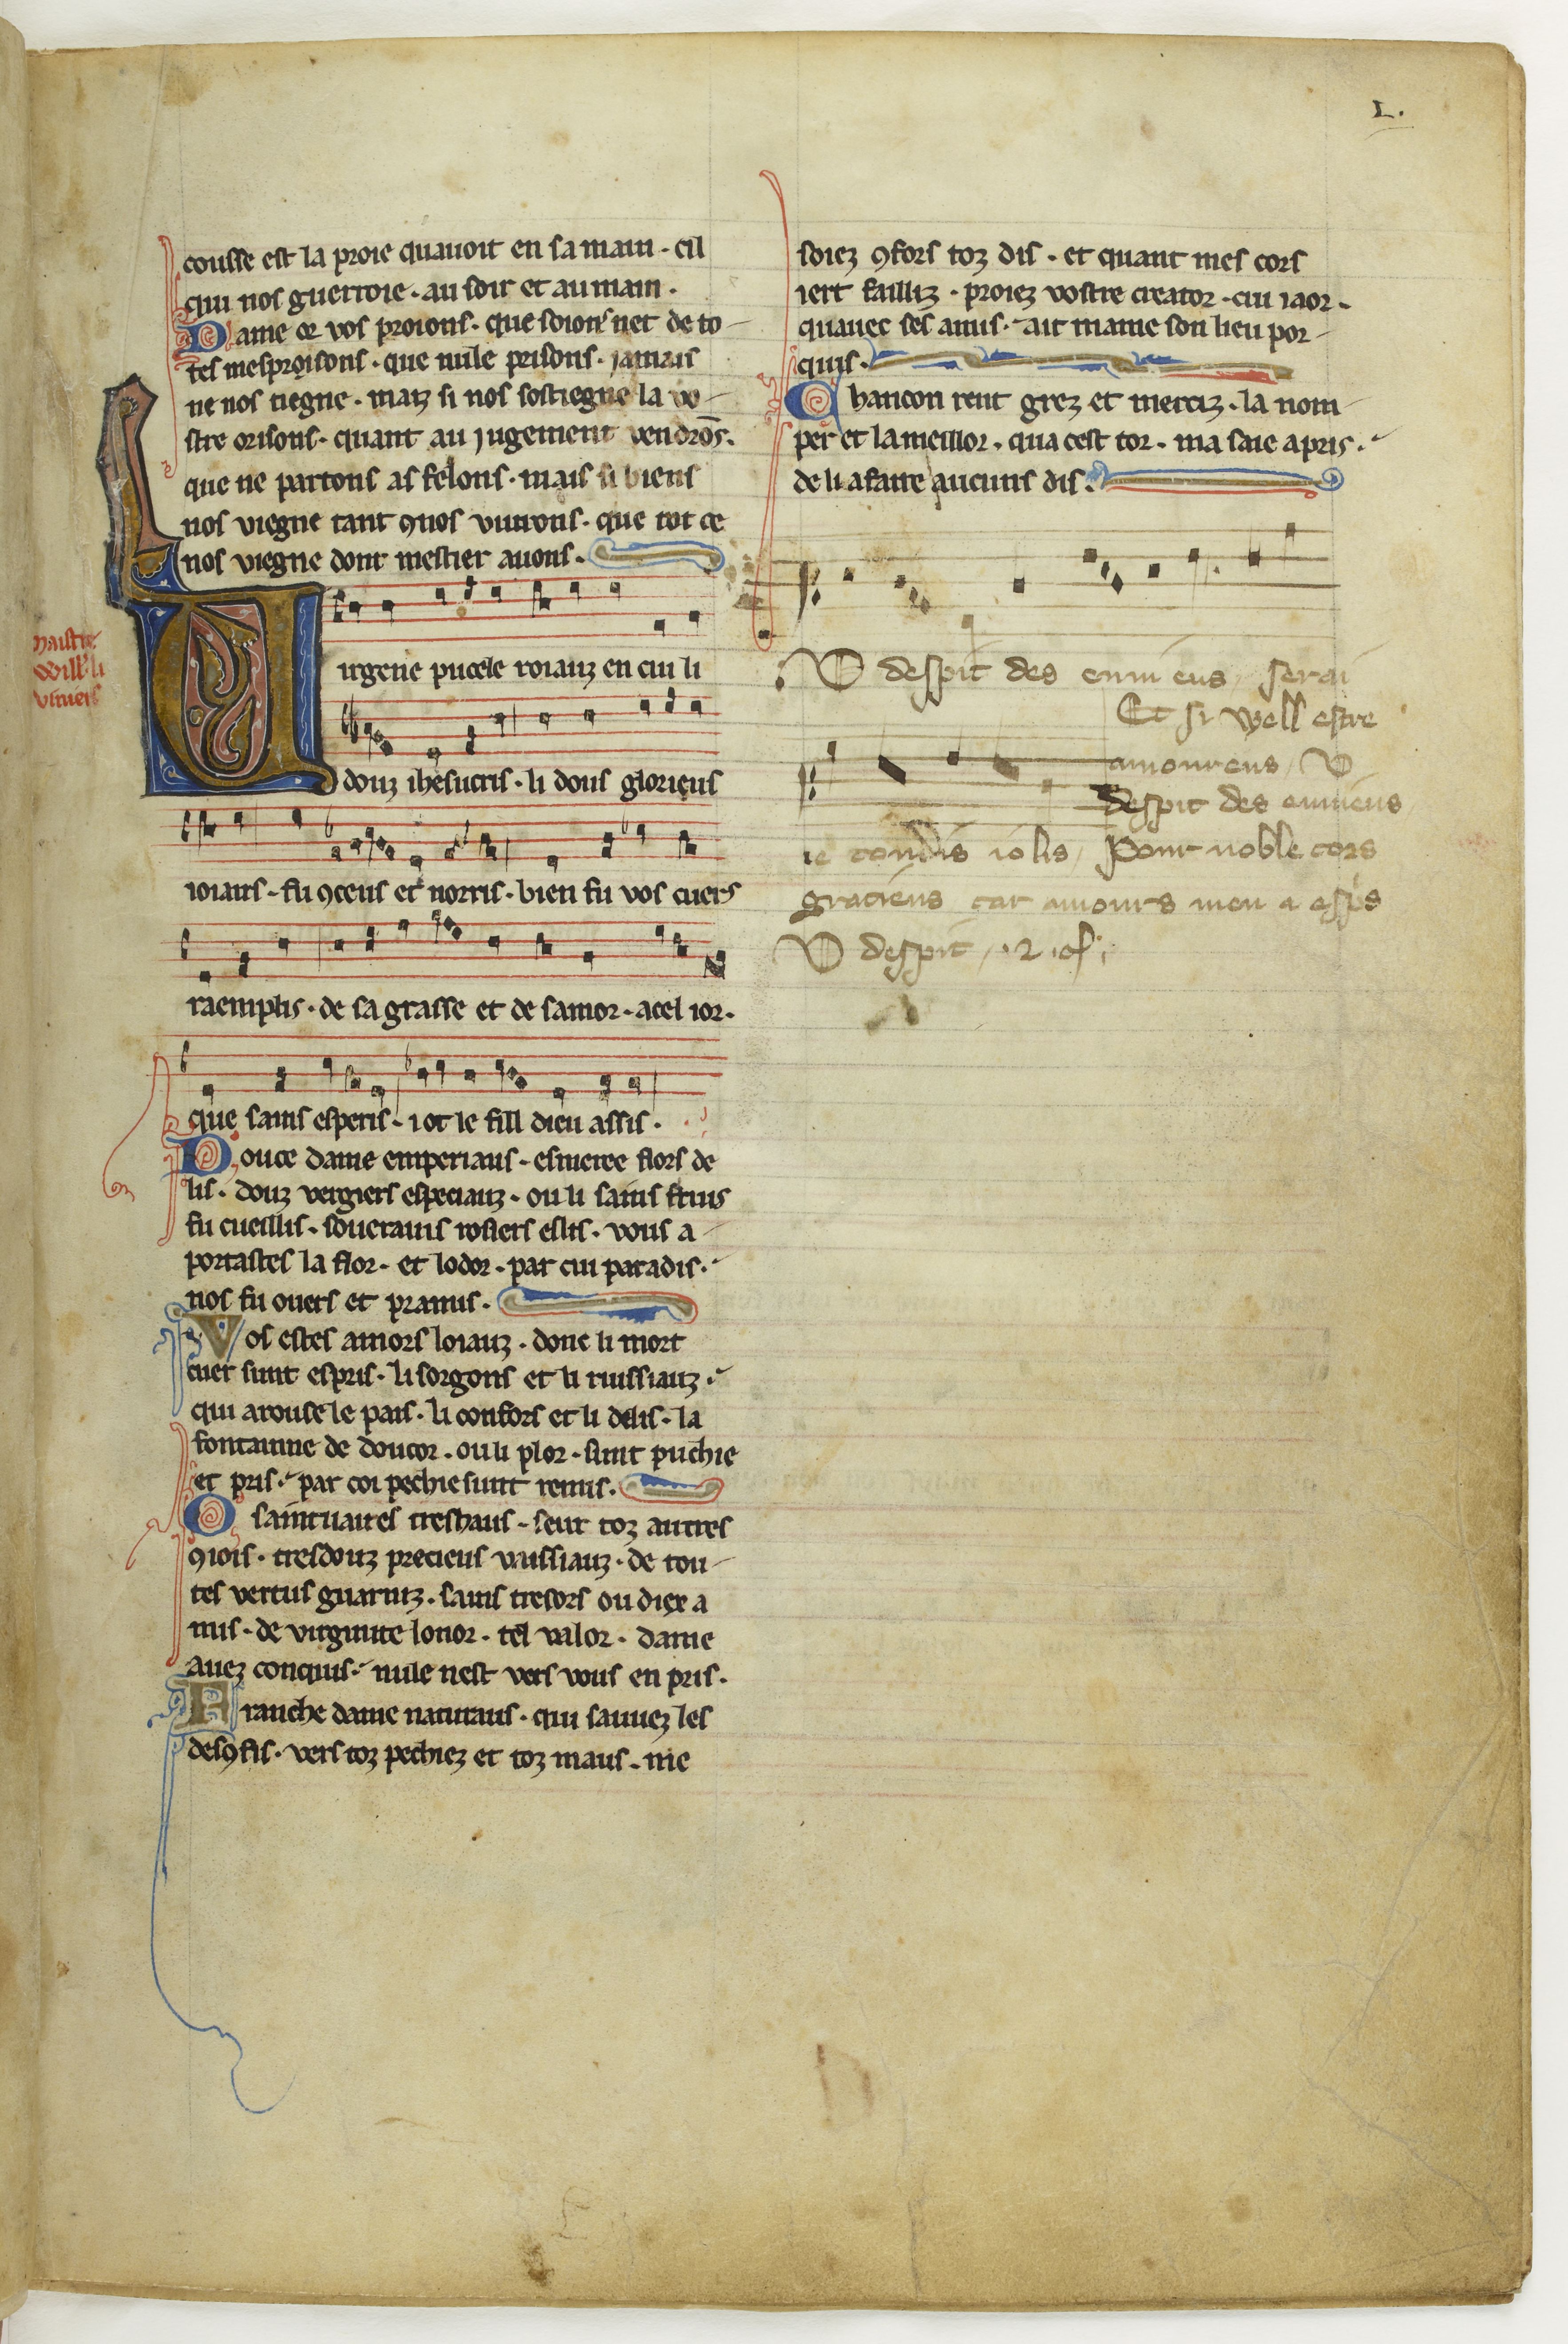 L.
cousse est la proie quauoit en sa main · cil
qui nos guerroie · au soir et au main ·
Dame or vos proions · que soions net de to-
tes mesproisons · que nule prisons · jamais
ne nos tiegne · maiz si nos sostiegne la vo-
stre orisons · quant au jugement vendrōs.
que ne partons as felons · mais si biens
nos viegne tant ꝯnos viurons · que tot ce
nos viegne dont mestier auons ·
maistre
Will's li
viniers
Uirgene pucele roiauz en cui li
douz ihesucris · li dous glorieus
ioians · fu ꝯceus et norris · bien fu vos cuers
raemplis · de sa grasse et de samor · acel ior ·
que sains esperis · i ot le fill dieu assis ·
Douce dame emperiaus · esmeree flors de
lis · douz vergiers especiauz · ou li sains fruis
fu cueillis · souerains rosiers eslis · vous a-
portastes la flor · et lodor · par cui paradis ·
nos fu ouers et pramis ·
Vos estes amors loiauz · dont li mort
cuer sunt espris · li sorgons et li ruissiauz ·
qui arouse le pais · li confors et li delis · la
fontainne de doucor · ou li plor · sunt puchie
et pris · par coi pechie sunt remis ·
O saintuaires treshaus · seur toz autres
ꝯiois · tresdouz precieus vaissiauz · de tou-
tes vertus guarniz · sains tresors ou diex a
mis · de virginite lonor · tel valor · dame
auez conquis · nule nest vers vous en pris ·
Franche dame naturaus · qui sauuez les
desꝯfis · vers toz pechiez et toz maus · me
soiez ꝯfors toz dis · et quant mes cors
iert failliz · proiez vostre creator · cui iaor ·
quauec ses amis · ait mame son lieu por-
quis ·
Chancon rent grez et merciz · la nom
per et la meillor · qua cest tor · ma saie apris ·
de li a faire aucuns dis ·
U despit des enuieus / serai
Et si well estre
amoureus / U
despit des enuieus /
ie toudis iolis / Pour noble cors
gracieus car amours men a espris
U despit / · 2 ·